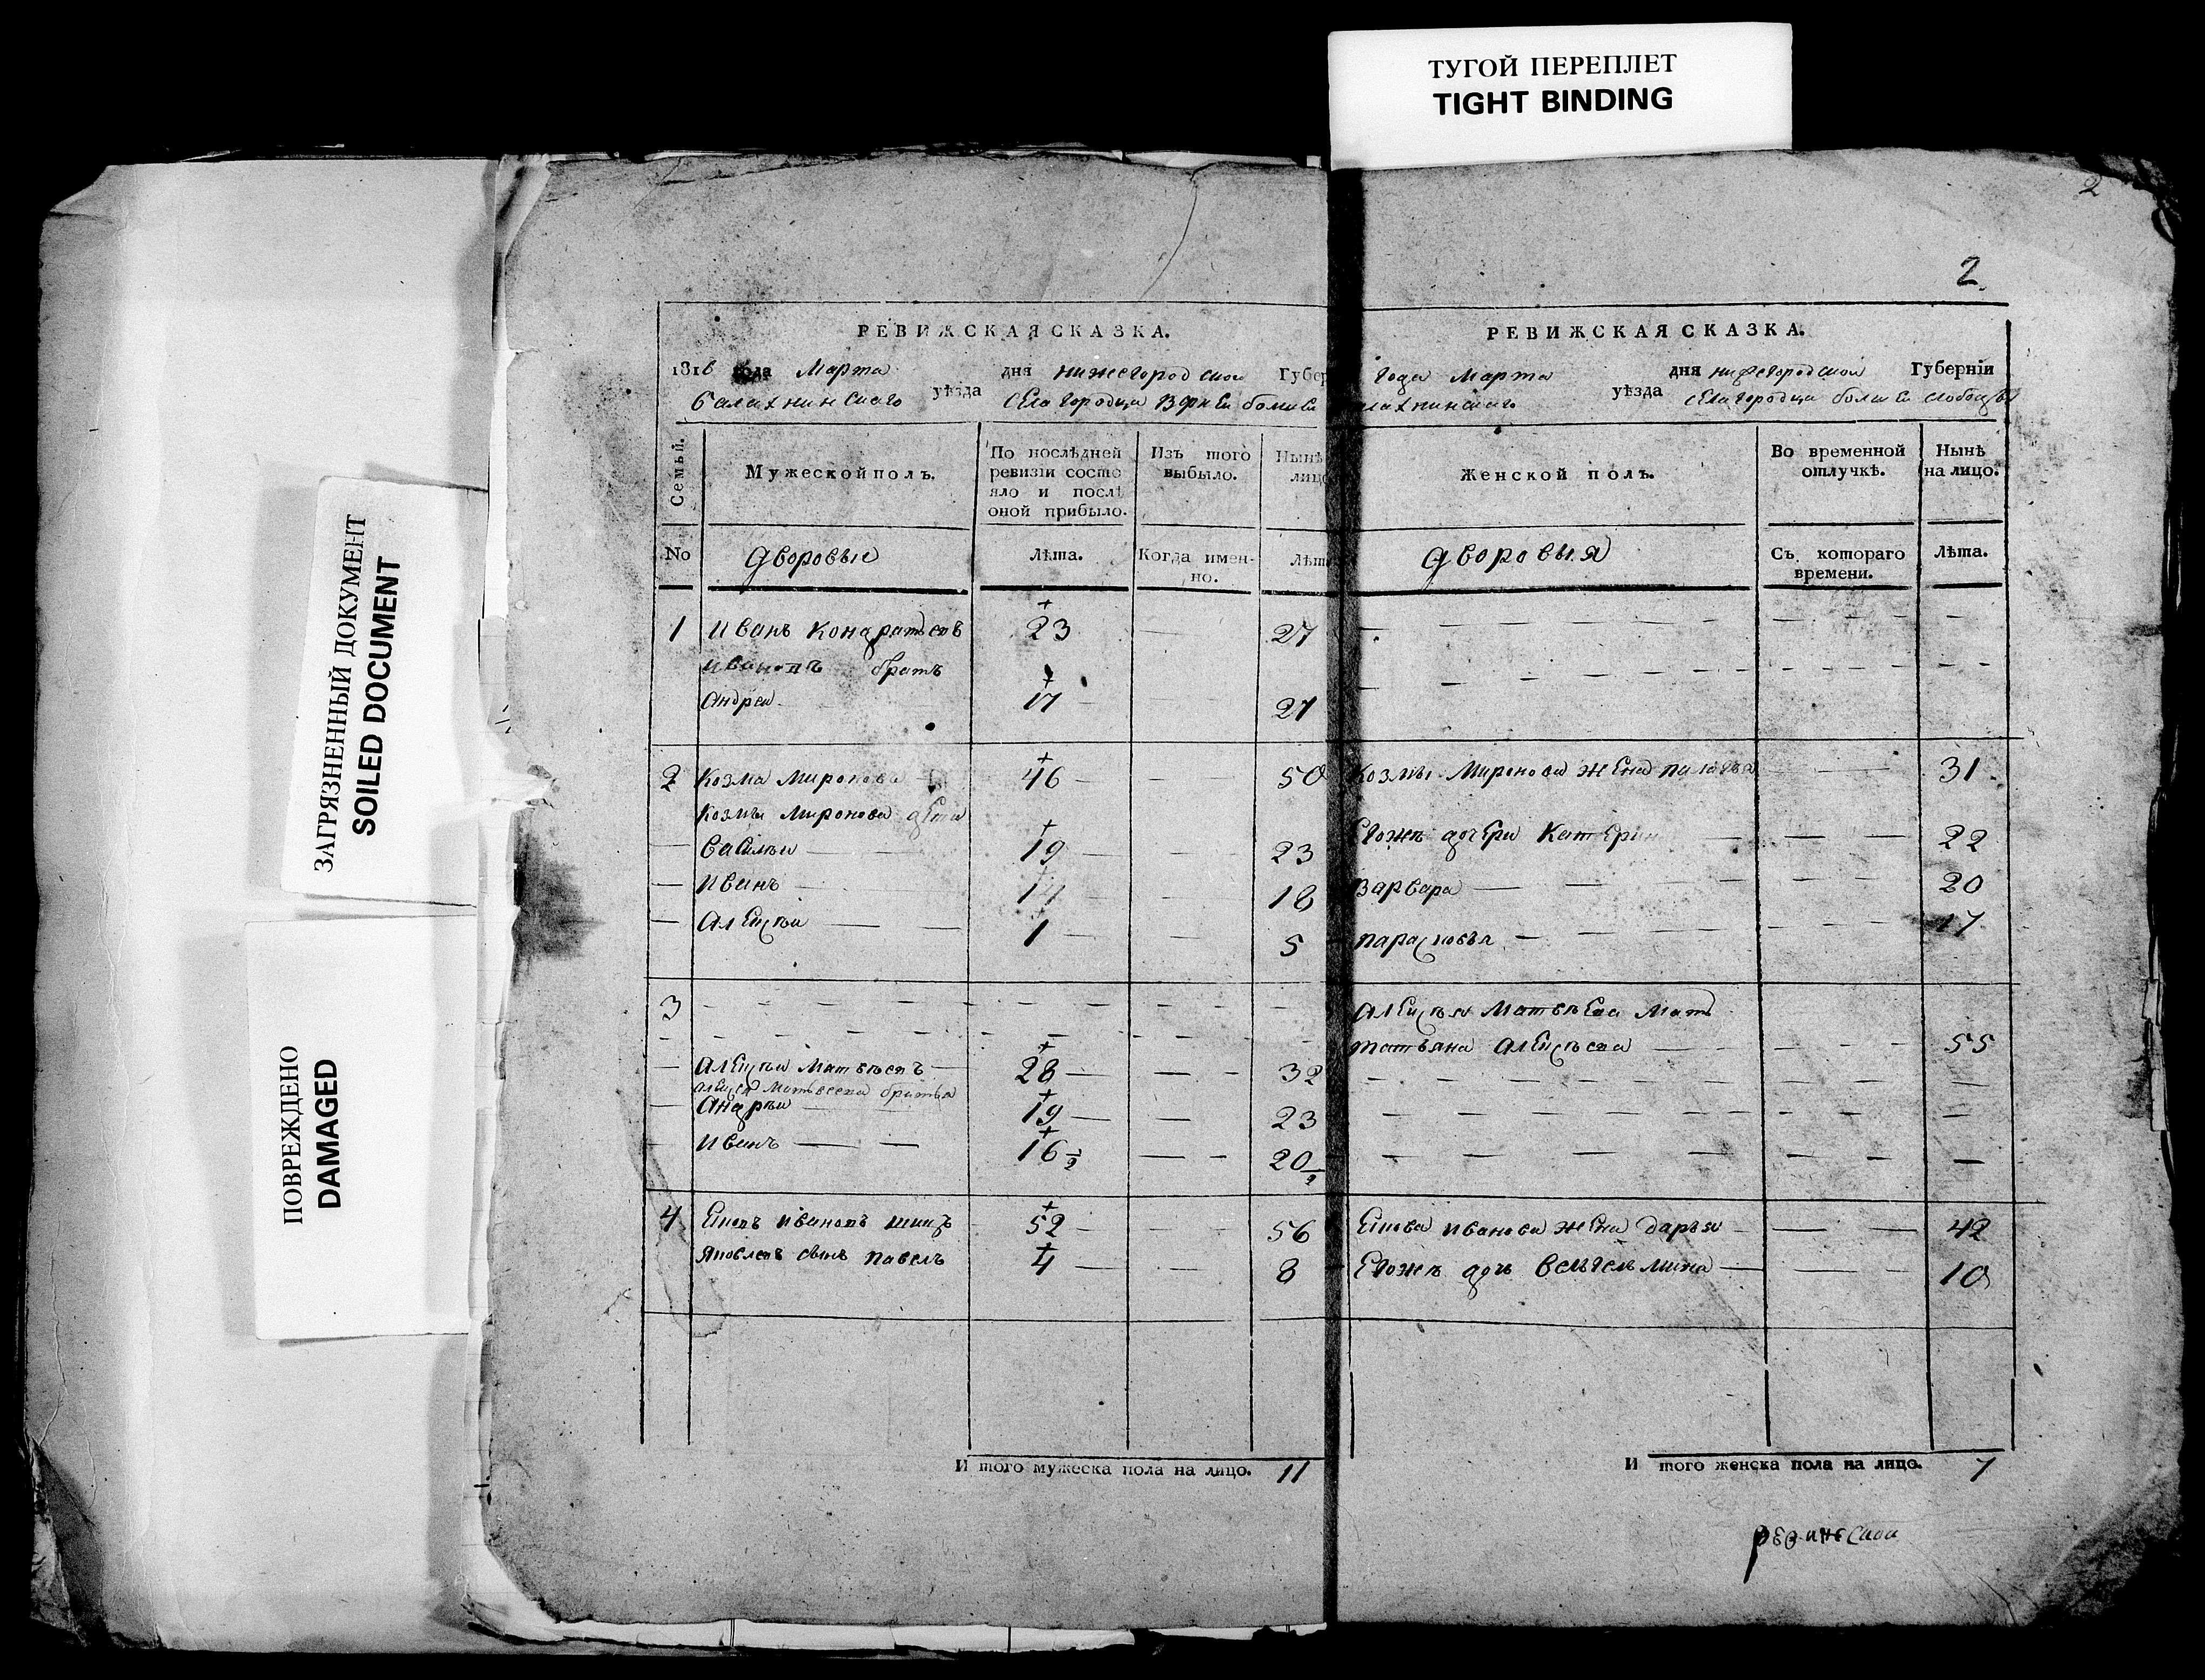 ТУГОЙ ПЕРЕПЛЕТ
TIGHT BINDING
ЗАГРЯЗНЕННЫЙ ДОКУМЕНТ
SOILED DOCUMENT
ПОВРЕЖДЕНО
DAMAGED
РЕВИЖСКАЯ СКАЗКА.
1816 года Марта дня нижегородской Губер
балахнинскаго уѣзда села городца
Семьи.
Мужеской полъ.
По послѣдней ревизіи состо
яло и послѣ
оной прибыло.
Изъ того выбыло.
Нынѣ
лицо
No
дворовые
Лѣта.
Когда имен-
но.
Лѣта
1 иванъ кондратьевъ 23 27
ивановъ братъ
андреи 17 21
2 козма миронова 46 50
козмы миронова дети
василеи 19 23
иванъ 14 18
алексѣи 1 5
3
алексѣи матвѣевъ 28 32
алексея матвеева братья
андрѣи 19 23
иванъ 16 20
4 ивановъ 52 56
сынъ павелъ 4 8
И того мужеска пола на лицо. 11
2
2
РЕВИЖСКАЯ СКАЗКА.
года Марта дня нижегородской Губерніи
лахнинскаго уѣзда села городца слободы
Женской полъ.
Во временной
отлучкѣ.
Нынѣ
на лицо.
дворовыя
Съ котораго
времени.
Лѣта.
козмы миронова жена 31
Егожъ дочери катерин 22
варвара 20
парасковья 17
алексѣя матвѣева мать
татьяна алексѣева 55
иванова жена дарья 42
Егожъ дочь 10
И того женска пола на лицо. 7